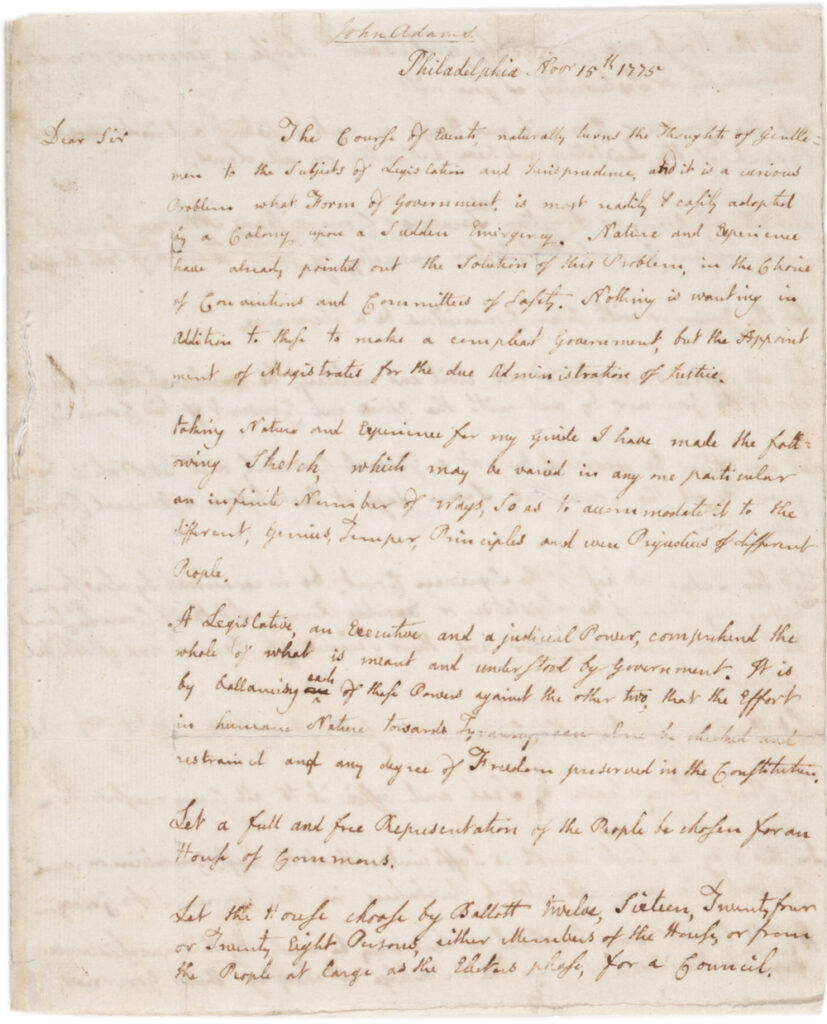 John Adams.
Philadelphia Novr 15th 1775
Dear Sir The Course of Events, naturally turns the Thoughts of Gentle-
men to the Subjects of Legislation and Jurisprudence, and it is a curious
Problem what Form of Government, is most readily & easily adopted
by a Colony, upon a Sudden Emergency. Nature and Experience
have already pointed out the Solution of this Problem, in the Choice
of Conventions and Committees of Safety. Nothing is wanting in
Addition to these to make a compleat Government, but the Appoint
ment of Magistrates for the due Administration of Justice.
taking Nature and Experience for my guide I have made the foll-
owing Sketch, which may be varied in any one particular
an infinite Number of Ways, So as to accommodate it to the
different, Genius, Temper, Principles and even Prejudices of different
People.
A Legislative, an Executive and a judicial Power, comprehend the
whole of what is meant and understood by Government. It is
by ballancing each of these Powers against the other two, that the Effort
in humane Nature towards Tyranny, can alone be checked and
restrained and any degree of Freedom preserved in the Constitution.
Let a full and free Representation of the People be chosen for an
House of Commons.
Let the House choose by Ballott twelve, Sixteen, Twenty four
or Twenty Eight Persons, either Members of the House, or from
the People at large as the Electors please, for a Council.